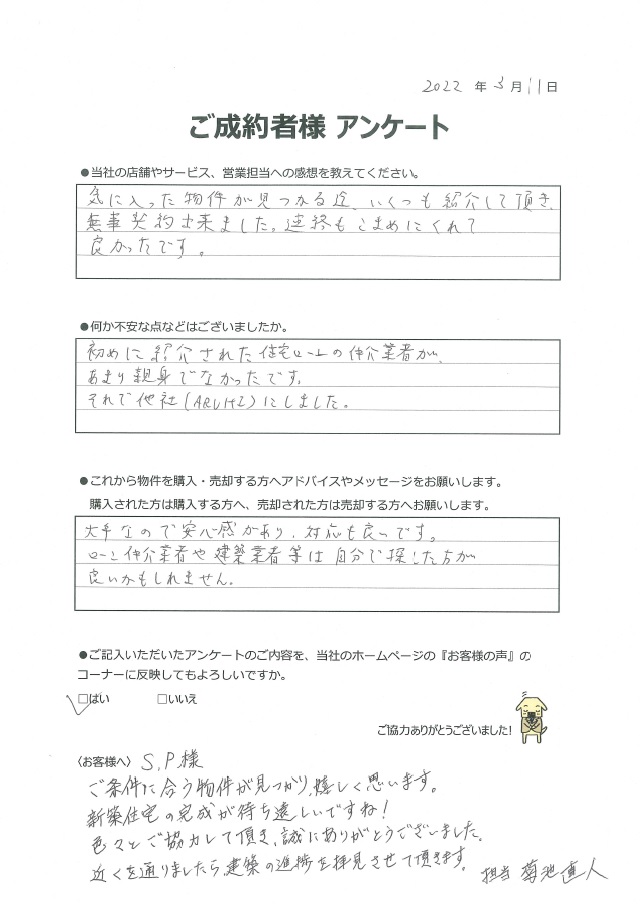 2022 年 3 月 11 日
ご成約者様 アンケート
●当社の店舗やサービス、営業担当への感想を教えてください。
気に入った物件が見つかる迄、いくつも紹介して頂き、
無事契約出来ました。連絡もこまめにくれて
良かったです。
●何か不安な点などはございましたか。
初めに紹介された住宅ローンの仲介業者が、
あまり親身でなかったです。
それで他社(ARUHI)にしました。
●これから物件を購入・売却する方へアドバイスやメッセージをお願いします。
購入された方は購入する方へ、売却された方は売却する方へお願いします。
大手なので安心感があり、対応も良いです。
ローン仲介業者や建築業者等は自分で探した方が
良いかもしれません。
●ご記入いただいたアンケートのご内容を、当社のホームページの『お客様の声』の
コーナーに反映してもよろしいですか。
☑はい □いいえ
ご協力ありがとうございました!
〈お客様へ〉 S.P様
ご条件に合う物件が見つかり、嬉しく思います。
新築住宅の完成が待ち遠しいですね!
色々とご協力して頂き、誠にありがとうございました。
近くを通りましたら、建築の進捗を拝見させて頂きます。 担当 菊池直人